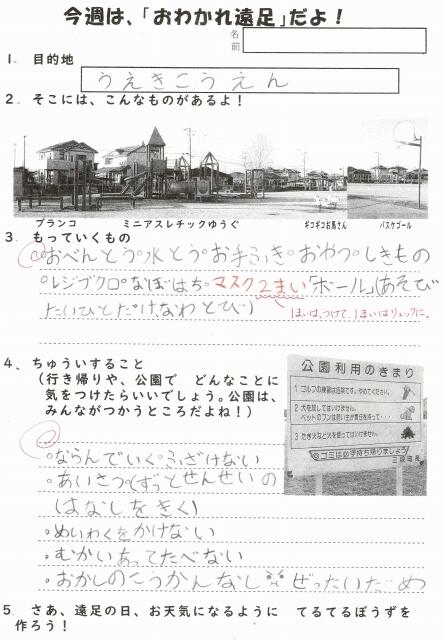 今週は、「おわかれ遠足」だよ！
名前
1. 目的地
うえきこうえん
2. そこには、こんなものがあるよ！
ブランコ ミニアスレチックゆうぐ ギコギコお馬さん バスケゴール
3. もっていくもの
おべんとう°水とう°お手ふき°おやつ°しきもの
°レジブクロ°なぼはち°マスク2まい「ボール」(あそび
たいひとだけ,なわとび)
1まいは、つけて、1まいはリュックに。
4. ちゅういすること
(行き帰りや、公園で どんなことに
気をつけたらいいでしょう。公園は、
みんながつかうところだよね！)
公園利用のきまり
1 ゴルフの練習は危険です。やめてください。
2 犬を放してはいけません。
ペットのフンは飼い主が責任を持って・・・
3 たき火など火を使ってはいけません。
ゴミは必ず持ち帰りましょう
°ならんでいく°ふざけない
°あいさつ(ずっとせんせいの
はなしをきく)
°めいわくをかけない
°むかいあってたべない
°おかしのこうかんなし ぜったいだめ
5. さあ、遠足の日、お天気になるように てるてるぼうずを
作ろう！